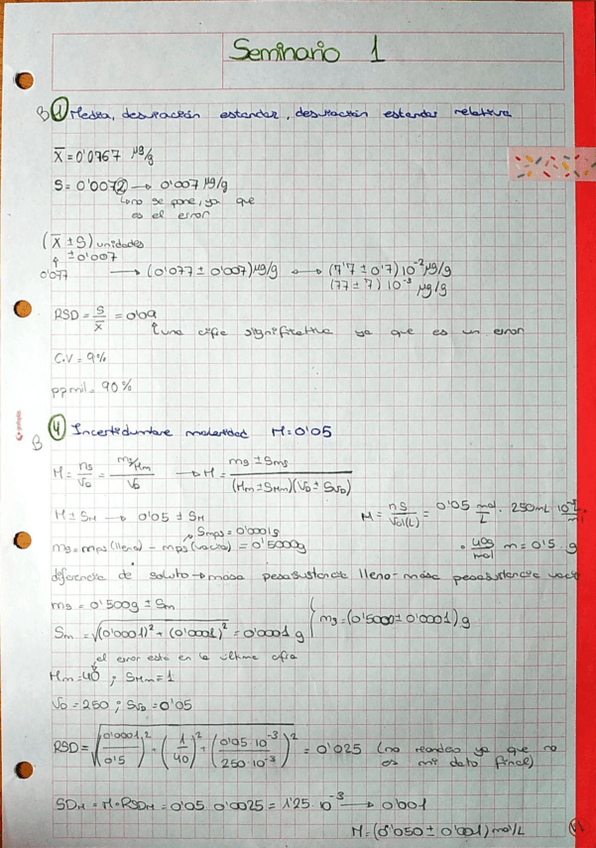 Seminario 1
B ① Media, desviación estandar, desviación estandar relativa
X̄ = 0'0767 µg/g
S = 0'0072 → 0'007 µg/g
↳ no se pone, ya que
es el error
(X̄ ± S) unidades
↑ ±0'007
0'077 → (0'077 ± 0'007) µg/g ↔ (7'7 ± 0'7) 10⁻² µg/g
(77 ± 7) 10⁻³ µg/g
RSD = S/X̄ = 0'09
↑ una cifra significativa ya que es un error
C.V = 9%
ppmil = 90%
B ④ Incertidumbre molaridad M = 0'05
M = ns/VD = (ms/Mm)/VD → M = (ms ± Sms)/((Mm ± SMm)(VD ± SVD))
M ± SM → 0'05 ± SM
M = nS/Vol(L) = 0'05 mol/L · 250mL 10⁻³
Smps = 0'0001g
ms = mps (lleno) - mps (vacio) = 0'5000g
· 40g/mol m = 0'5 g
diferencia de soluto → masa pesasustancia lleno - masa pesasustancia vacio
ms = 0'500g ± Sm
Sm = √((0'0001)² + (0'0001)²) = 0'0001 g
ms = (0'5000 ± 0'0001) g
el error está en la última cifra
Mm = 40 ; SMm = 1
VD = 250 ; SVD = 0'05
RSD = √((0'0001/0'5)² + (1/40)² + (0'05 10⁻³/250·10⁻³)²) = 0'025 (no redondeo ya que no
es mi dato final)
SDM = M·RSDM = 0'05 · 0'0025 = 1'25 · 10⁻³ → 0'001
M = (0'050 ± 0'001) mol/L